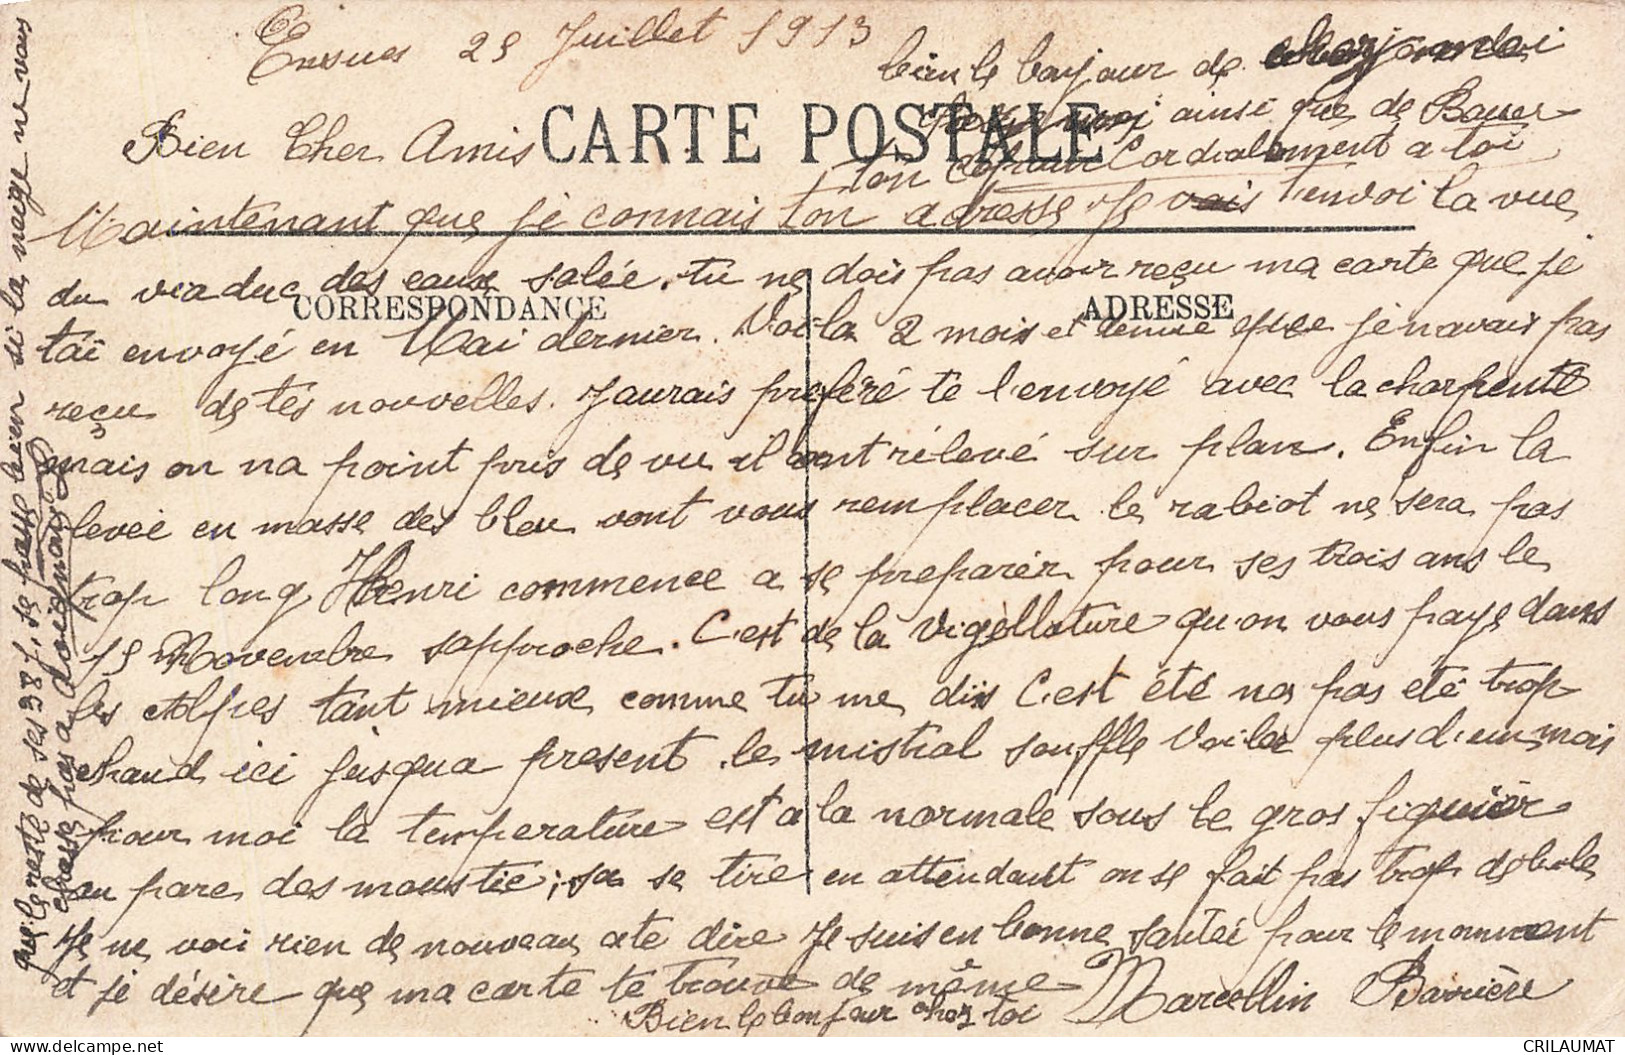 Ensues 25 Juillet 1913
bien le bonjour de
ainsi que de Bauer
CARTE POSTALE
Bien Cher Amis
ton Cordialement a toi
Maintenant que je connais ton adresse je vais t'envoi la vue
du viaduc des eaux salée. tu ne dois pas avoir reçu ma carte que je
CORRESPONDANCE
ADRESSE
tai envoyé en Mai dernier. Voila 2 mois et demie que je navais pas
reçu de tes nouvelles. Jaurais preferé te l'envoyé avec la charpente
mais on na point pris de vu il lont rélevé sur plan. Enfin la
levée en masse des bleu vont vous remplacer le rabiot ne sera pas
trop long Henri commence a se preparér pour ses trois ans le
15 Novembre sapproche. C'est de la Vigéllature qu'on vous paye dans
les Alpes tant mieux comme tu me dis C'est été na pas eté trop
chaud ici jusqua present. le mistral souffle Voila plus d'un mois
pour moi la temperature est a la normale sous le gros figuier
au parc des moustic; sa se tire en attendant on se fait pas trop de bile
Je ne voi rien de nouveau a te dire Je suis en bonne santée pour le moment
et je désire que ma carte te trouve de même
Marcellin Barrière
Bien le bonjour chez toi
que le reste de ses 38 j. se passe bien si la neige ne vous
chasse pas a Jausiers